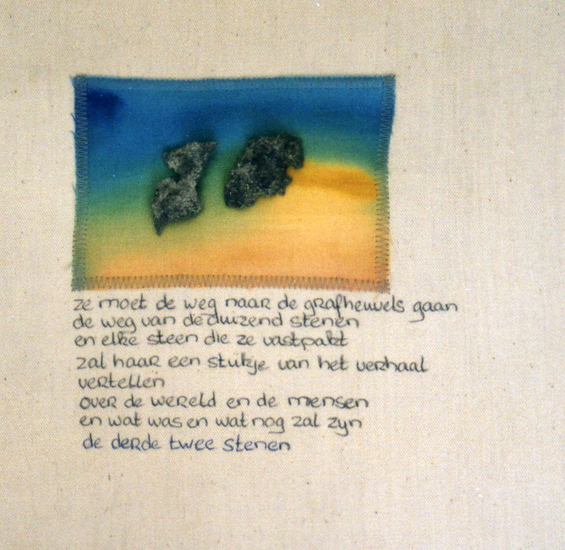 ze moet de weg naar de grafheuvels gaan
de weg van de duizend stenen
en elke steen die ze vastpakt
zal haar een stukje van het verhaal
vertellen
over de wereld en de mensen
en wat was en wat nog zal zyn
de derde twee stenen